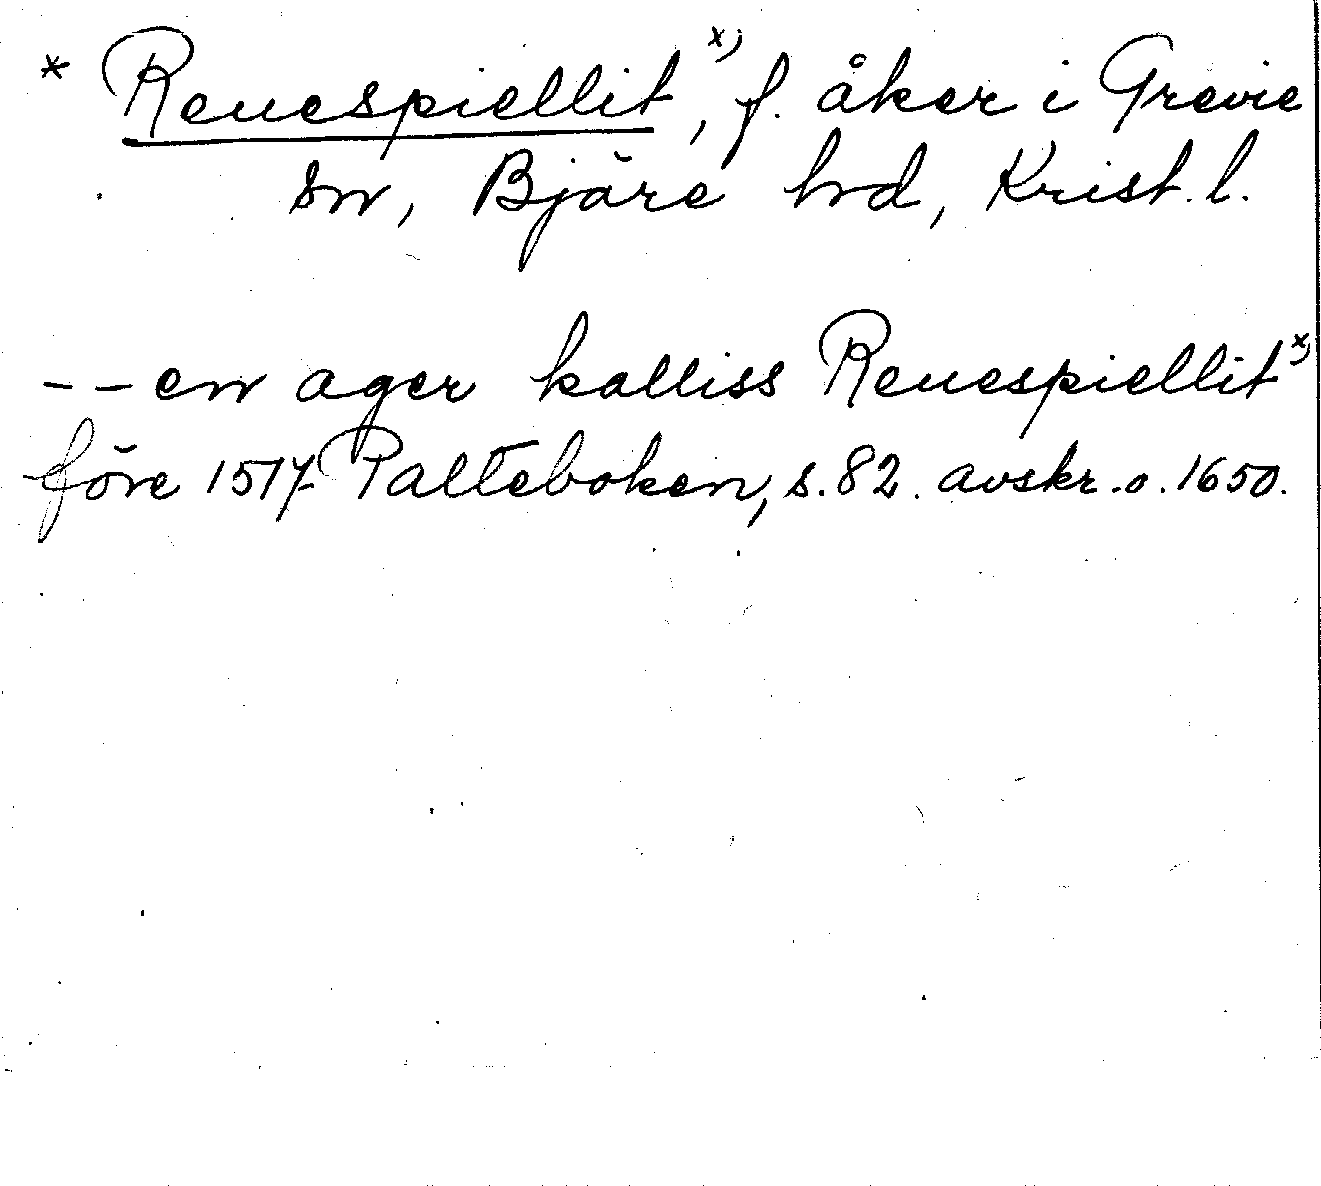 * Reuespiellit x), f. åker i Grevie
sn, Bjäre hd, Krist. l.
-- en ager kalliss Reuespiellit x)
före 1517 Palteboken, s. 82. avskr. o. 1650.